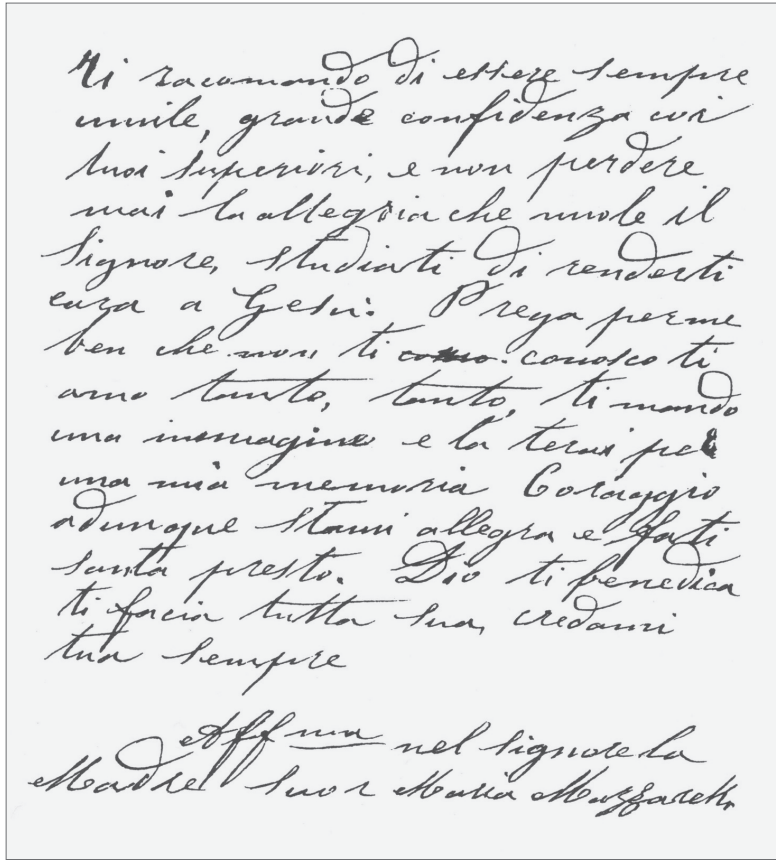 Ti racomando di essere sempre
umile, grande confidenza coi
tuoi superiori, e non perdere
mai la allegria che vuole il
Signore, studiati di renderti
cara a Gesù. Prega per me
ben che non ti conosco ti
amo tanto, tanto, ti mando
una immagine e la terai per
una mia memoria Coraggio
adunque stami allegra e fati
santa presto. Dio ti benedica
ti facia tutta sua, credami
tua sempre
Aff ma nel Signore la
Madre Suor Maria Mazzarello